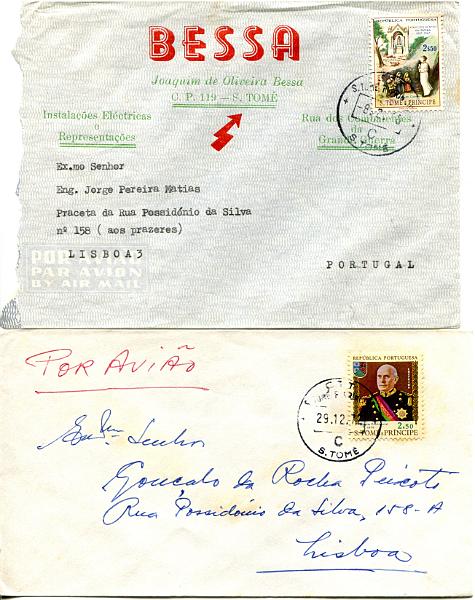 BESSA
Joaquim de Oliveira Bessa
C. P. 119 — S. TOMÉ
Instalações Eléctricas
e
Representações
Rua dos Combatentes
da
Grande Guerra
REPÚBLICA PORTUGUESA
2$50
S. TOMÉ E PRÍNCIPE
C
S. TOMÉ
Ex.mo Senhor
Eng. Jorge Pereira Matias
Praceta da Rua Possidónio da Silva
nº 158 ( aos prazeres)
LISBOA3
PORTUGAL
POR AVIÃO
PAR AVION
BY AIR MAIL
POR AVIÃO
REPÚBLICA PORTUGUESA
2.50
S. TOMÉ E PRÍNCIPE
29.12.
C
S. TOMÉ
Senhor
Gonçalo da Rocha Peixoto
Rua Possidónio da Silva, 158-A
Lisboa